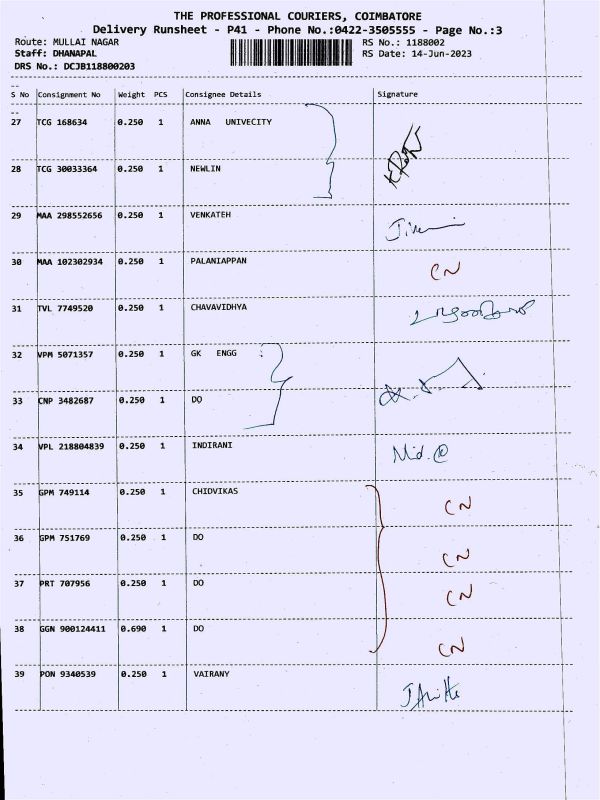 THE PROFESSIONAL COURIERS, COIMBATORE
Delivery Runsheet - P41 - Phone No.:0422-3505555 - Page No.:3
Route: MULLAI NAGAR RS No.: 1188002
Staff: DHANAPAL RS Date: 14-Jun-2023
DRS No.: DCJB118800203
S No Consignment No Weight PCS Consignee Details Signature
27 TCG 168634 0.250 1 ANNA UNIVECITY
28 TCG 30033364 0.250 1 NEWLIN
29 MAA 298552656 0.250 1 VENKATEH
30 MAA 102302934 0.250 1 PALANIAPPAN CN
31 TVL 7749520 0.250 1 CHAVAVIDHYA
32 VPM 5071357 0.250 1 GK ENGG :
33 CNP 3482687 0.250 1 DO
34 VPL 218804839 0.250 1 INDIRANI
35 GPM 749114 0.250 1 CHIDVIKAS CN
36 GPM 751769 0.250 1 DO CN
37 PRT 707956 0.250 1 DO CN
38 GGN 900124411 0.690 1 DO CN
39 PON 9340539 0.250 1 VAIRANY